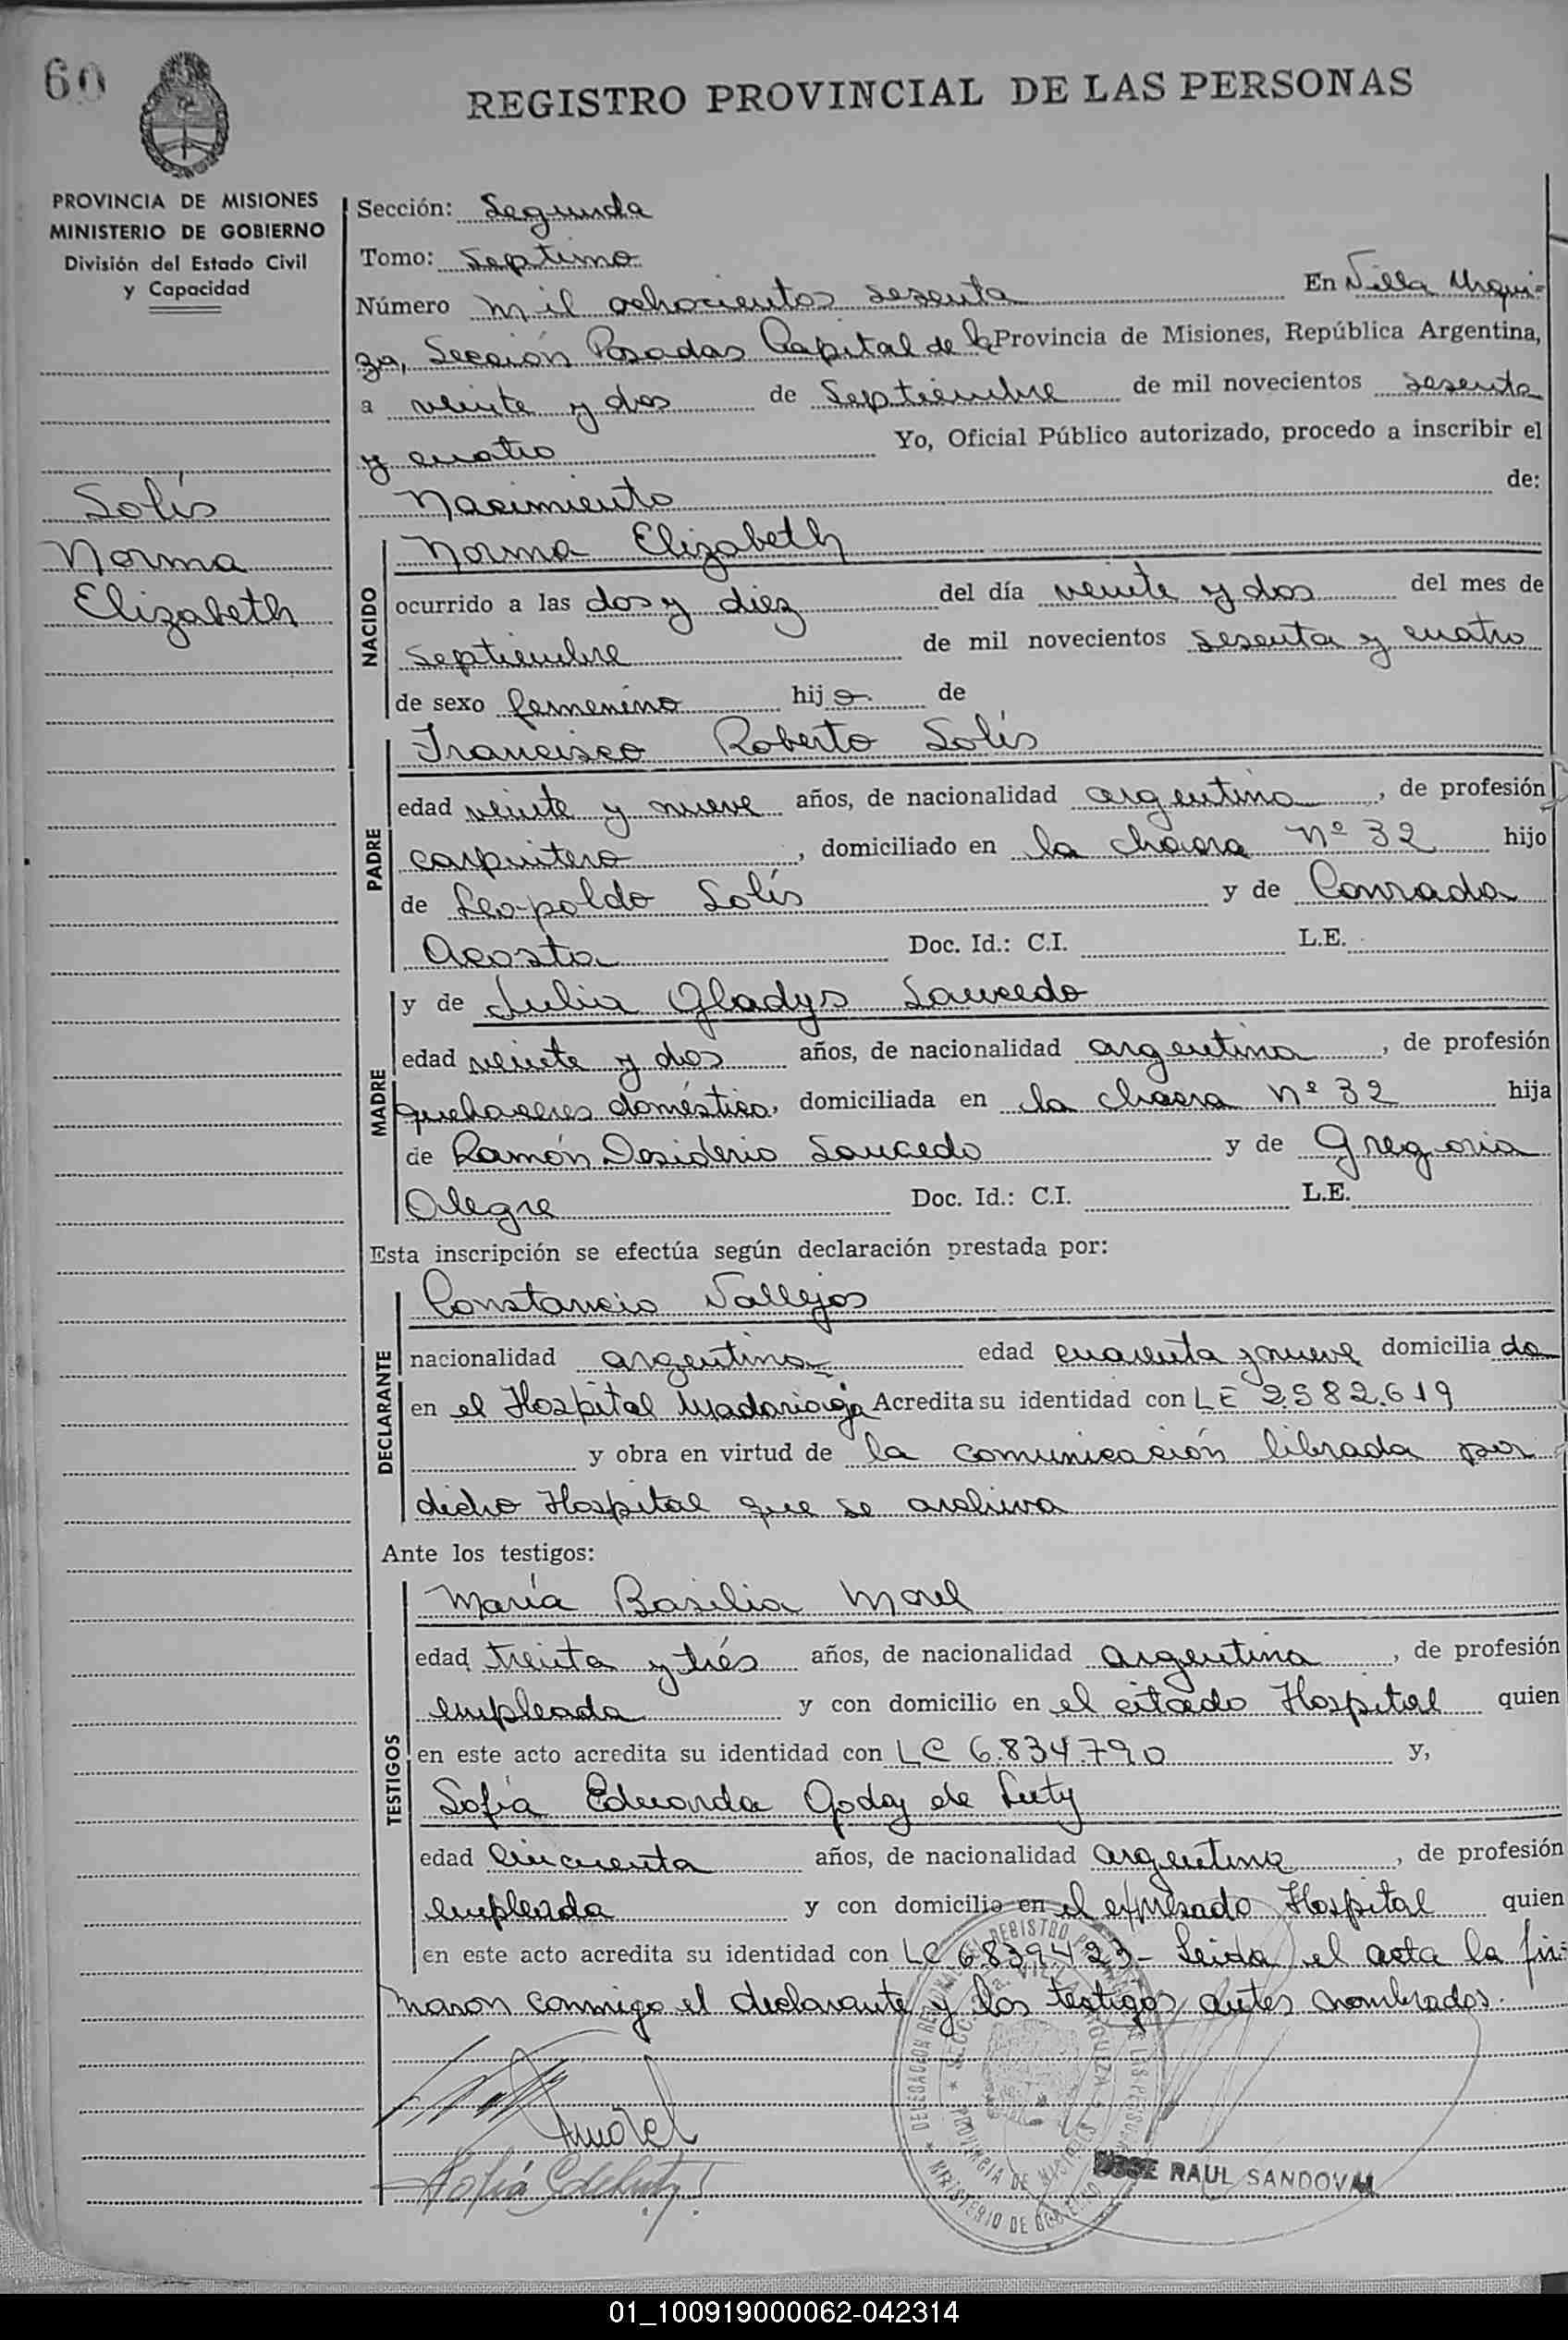 60
REGISTRO PROVINCIAL DE LAS PERSONAS
PROVINCIA DE MISIONES
MINISTERIO DE GOBIERNO
División del Estado Civil
y Capacidad
Solís
Norma
Elizabeth
Sección: Segunda
Tomo: Septimo
Número mil ochocientos sesenta En Villa Urqui-
za, Sección Posadas Capital de la Provincia de Misiones, República Argentina,
a veinte y dos de Septiembre de mil novecientos sesenta
y cuatro Yo, Oficial Público autorizado, procedo a inscribir el
Nacimiento de:
NACIDO
Norma Elizabeth
ocurrido a las dos y diez del día veinte y dos del mes de
Septiembre de mil novecientos sesenta y cuatro
de sexo femenino hija de
PADRE
Francisco Roberto Solís
edad veinte y nueve años, de nacionalidad argentina, de profesión
carpintero, domiciliado en la chacra nº 32 hijo
de Leopoldo Solís y de Conrada
Acosta Doc. Id.: C.I. L.E.
MADRE
y de Julia Gladys Saucedo
edad veinte y dos años, de nacionalidad argentina, de profesión
quehaceres doméstico, domiciliada en la chacra nº 32 hija
de Ramón Desiderio Saucedo y de Gregoria
Alegre Doc. Id.: C.I. L.E.
Esta inscripción se efectúa según declaración prestada por:
DECLARANTE
Constancio Vallejos
nacionalidad argentina edad cuarenta y nueve domiciliado
en el Hospital Madariaga Acredita su identidad con LE 2.582.619
y obra en virtud de la comunicación librada por
dicho Hospital que se archiva
Ante los testigos:
TESTIGOS
María Basilia Morel
edad treinta y trés años, de nacionalidad argentina, de profesión
empleada y con domicilio en el citado Hospital quien
en este acto acredita su identidad con LC 6.834.790 y,
Sofía Eduarda Godoy de Luty
edad cincuenta años, de nacionalidad argentina, de profesión
empleada y con domicilio en el expresado Hospital quien
en este acto acredita su identidad con LC 6.839.423- Leida el acta la fir-
maron conmigo el declarante y los testigos antes nombrados.
MMorel
Sofía G de Luty
DELEGACION REGISTRO
PROVINCIA DE MISIONES
MINISTERIO DE GOBIERNO
JOSE RAUL SANDOVAL
01_100919000062-042314